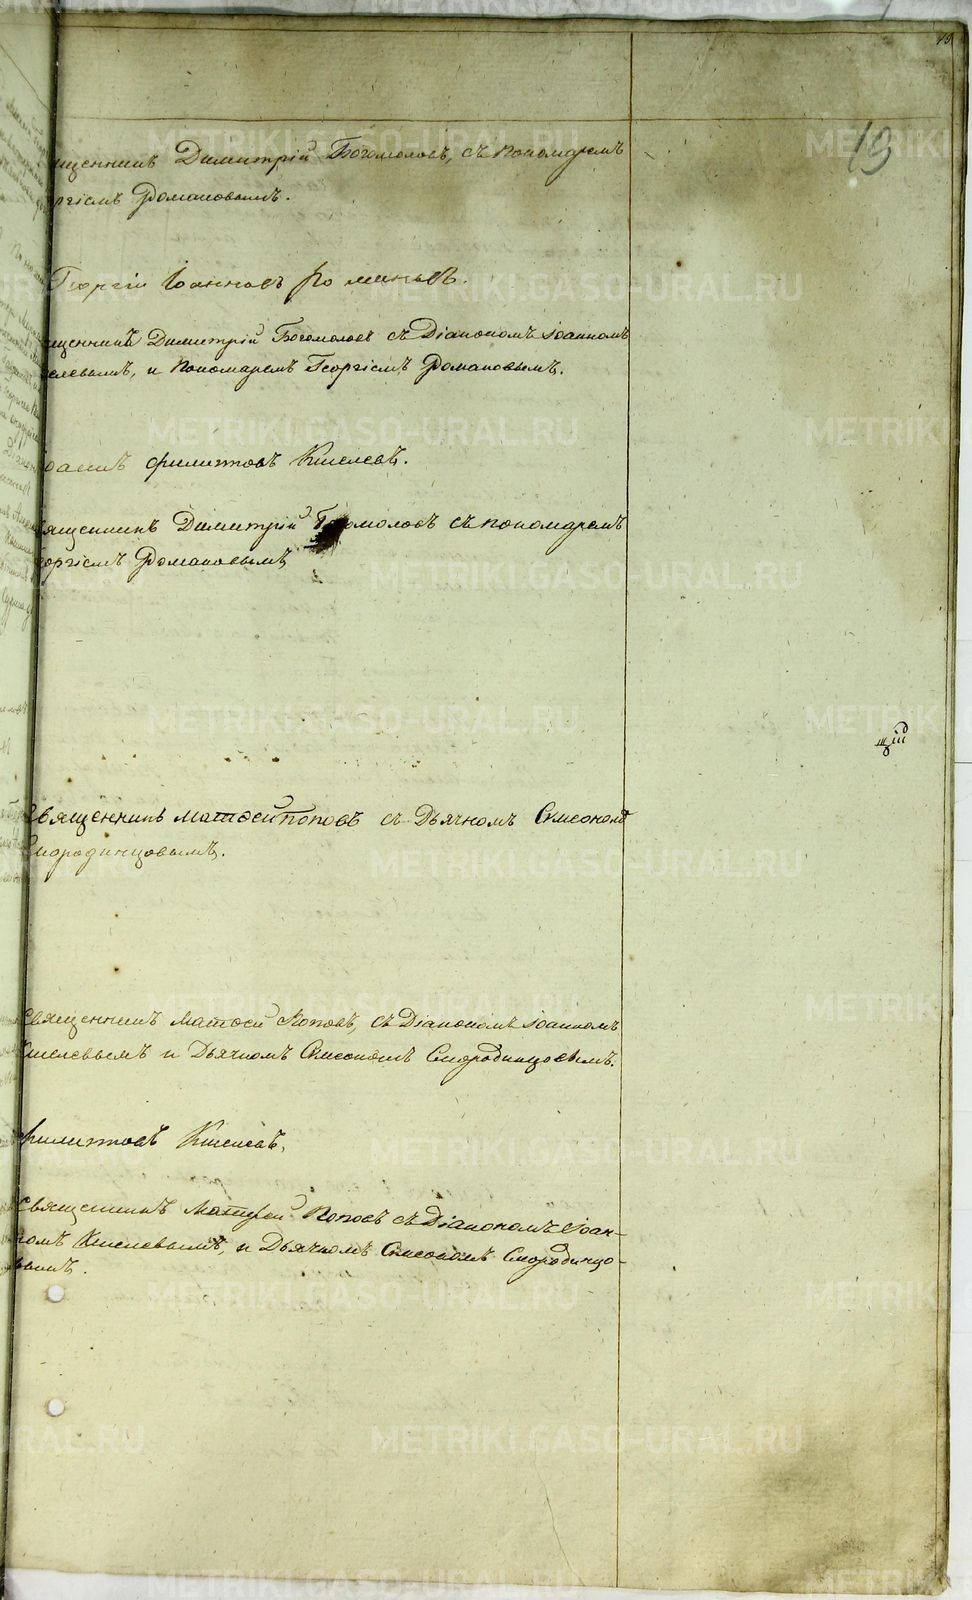 19
19
щенникъ Димитрій Богомоловъ, съ пономаремъ
ргіемъ Романовымъ.
Георгій Іоанновъ Романовъ.
щенникъ Димитрій Богомоловъ съ Діакономъ Іоанномъ
елевымъ, и пономаремъ Георгіемъ Романовымъ.
оаннъ Филиповъ Киселевъ.
вященникъ Димитрій Богомоловъ съ пономаремъ
оргіемъ Романовымъ
цій
Священникъ Матөей Поповъ съ Дьячкомъ Симеономъ
Смородинцовымъ.
Священникъ Матөей Поповъ, съ Діакономъ Іоанномъ
Киселевымъ и Дьячкомъ Симеономъ Смородинцовымъ.
Филиповъ Киселевъ.
Священникъ Матөей Поповъ съ Діакономъ Іоан-
номъ Киселевымъ, и Дьячкомъ Симеономъ Смородинцо-
вымъ.
METRIKI.GASO-URAL.RU